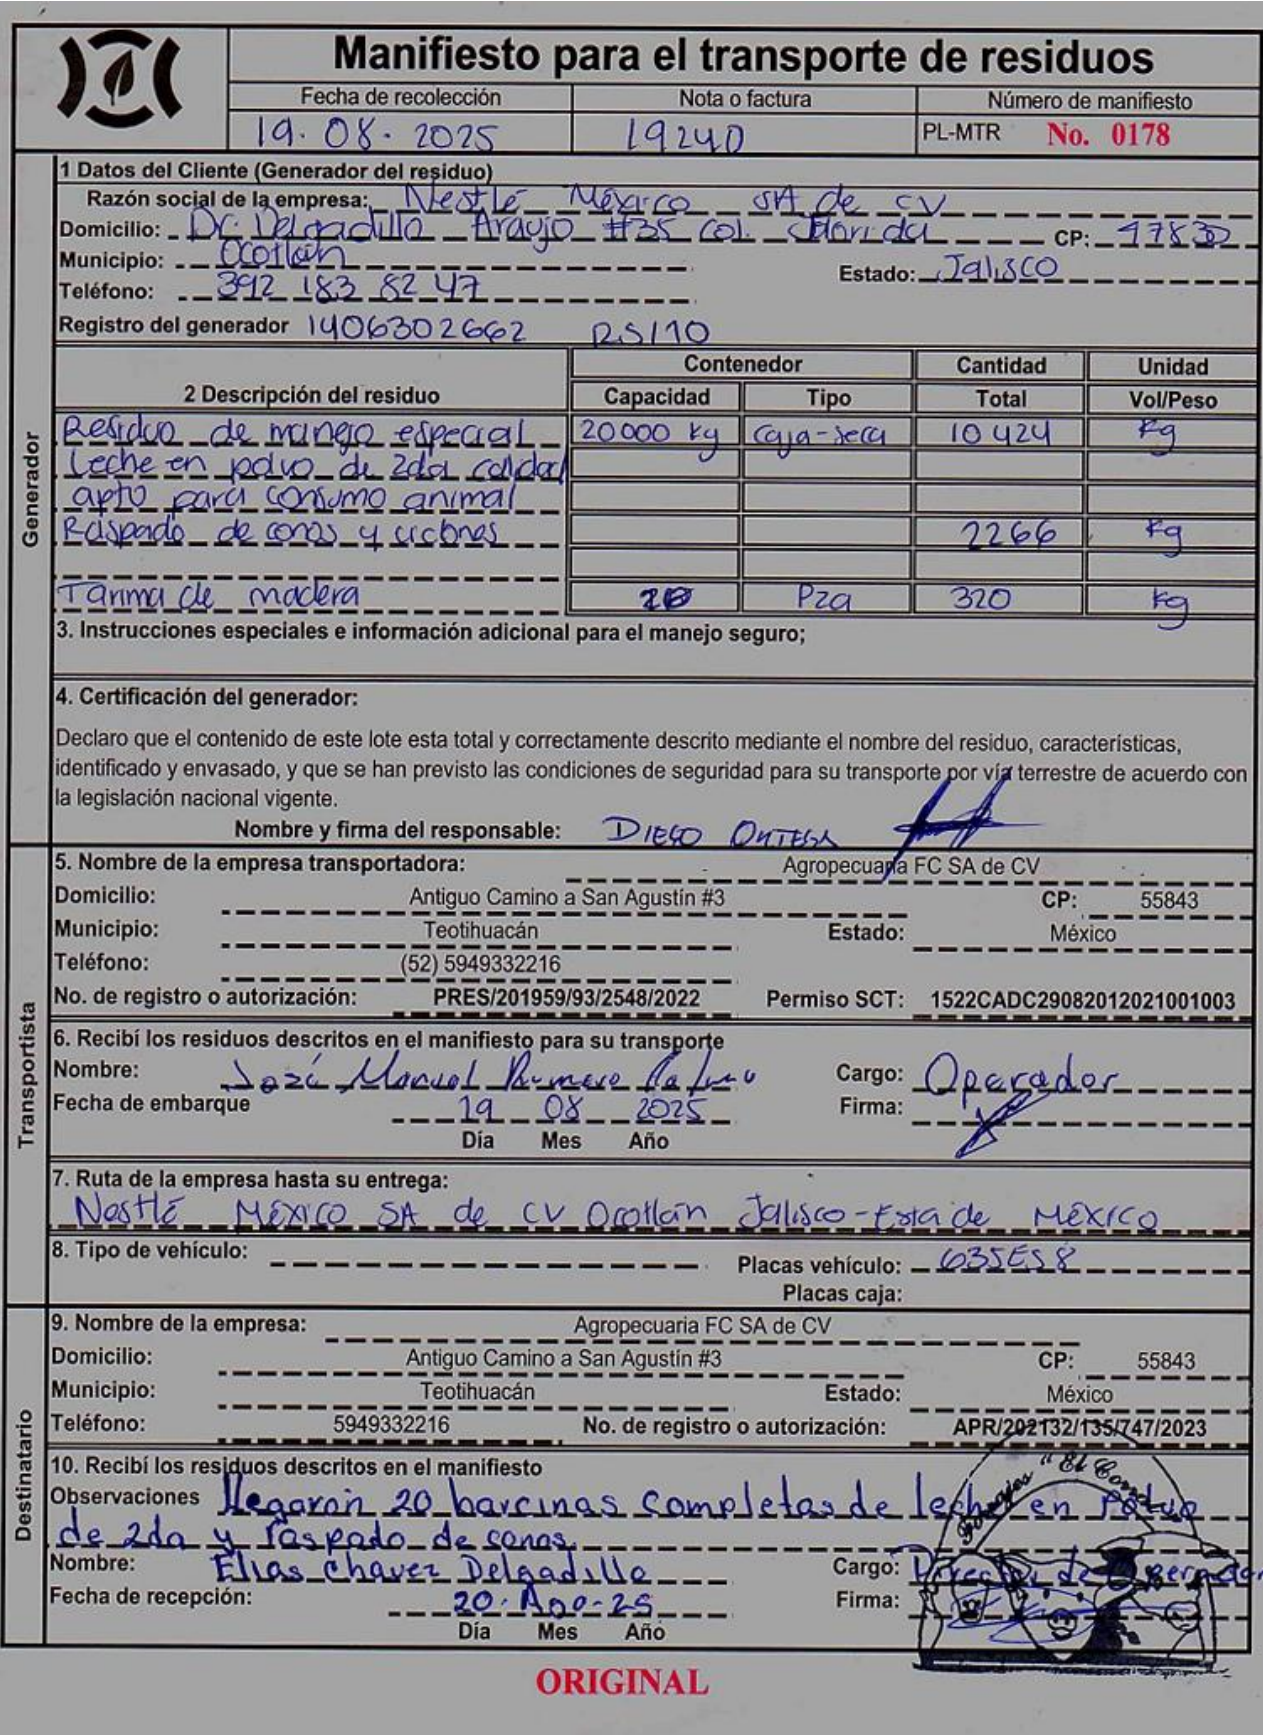 Manifiesto para el transporte de residuos
Fecha de recolección Nota o factura Número de manifiesto
19.08.2025 19240 PL-MTR No. 0178
Generador
1 Datos del Cliente (Generador del residuo)
Razón social de la empresa: Nestlé México SA de CV
Domicilio: Dr. Delgadillo Araujo #35 col. Florida CP: 47830
Municipio: Ocotlán
Estado: Jalisco
Teléfono: 392 183 82 47
Registro del generador 1406302662 RS/10
2 Descripción del residuo Contenedor Cantidad Unidad
Capacidad Tipo Total Vol/Peso
Residuo de manejo especial 20000 Kg Caja-seca 10424 Kg
Leche en polvo de 2da calidad
apto para consumo animal
Raspado de conos y ciclones 2266 Kg
Tarima de madera 20 Pza 320 Kg
3. Instrucciones especiales e información adicional para el manejo seguro;
4. Certificación del generador:
Declaro que el contenido de este lote esta total y correctamente descrito mediante el nombre del residuo, características,
identificado y envasado, y que se han previsto las condiciones de seguridad para su transporte por vía terrestre de acuerdo con
la legislación nacional vigente.
Nombre y firma del responsable: DIEGO ORTEGA
Transportista
5. Nombre de la empresa transportadora: Agropecuaria FC SA de CV
Domicilio: Antiguo Camino a San Agustín #3 CP: 55843
Municipio: Teotihuacán Estado: México
Teléfono: (52) 5949332216
No. de registro o autorización: PRES/201959/93/2548/2022 Permiso SCT: 1522CADC29082012021001003
6. Recibí los residuos descritos en el manifiesto para su transporte
Nombre: José Manuel Romero Cargo: Operador
Fecha de embarque 19 08 2025 Firma:
Día Mes Año
7. Ruta de la empresa hasta su entrega:
Nestlé México SA de CV Ocotlán Jalisco-Esta de México
8. Tipo de vehículo: Placas vehículo: 635ES8
Placas caja:
Destinatario
9. Nombre de la empresa: Agropecuaria FC SA de CV
Domicilio: Antiguo Camino a San Agustín #3 CP: 55843
Municipio: Teotihuacán Estado: México
Teléfono: 5949332216 No. de registro o autorización: APR/202132/135/747/2023
10. Recibí los residuos descritos en el manifiesto
Observaciones llegaron 20 barcinas completas de leche en Polvo
de 2da y raspado de conos
Nombre: Elias Chavez Delgadillo Cargo: Director de
Fecha de recepción: 20-Ago-25 Firma:
Día Mes Año
"El
ORIGINAL